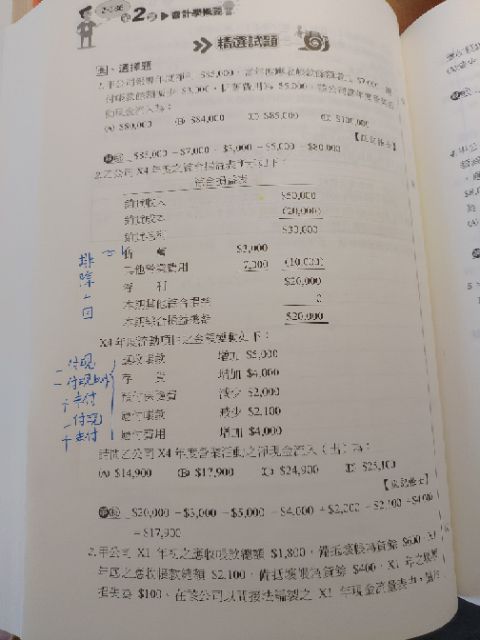 第2章 ▶ 會計學概要
精選試題
、選擇題
付帳款餘額減少 $3,000,折舊費用為 $5,000,該公司當年度營業活
動現金流入為:
(A) $80,000 (B) $84,000 (C) $85,000 (D) $100,000
$85,000 - $7,000 - $3,000 + $5,000 = $80,000
2.乙公司 X4 年度之綜合損益表列示如下:
綜合損益表
銷貨收入 $50,000
銷貨成本 (20,000)
銷貨毛利 $30,000
折 舊 $3,000
其他營業費用 7,000 (10,000)
淨 利 $20,000
本期其他綜合損益 0
本期綜合損益總額 $20,000
排
除
X4 年度流動項目之金額變動如下:
應收帳款 增加 $5,000
存 貨 增加 $4,000
預付保險費 減少 $2,000
應付帳款 減少 $2,100
應付費用 增加 $4,000
- 付現
+ 未付
- 付現
+ 未付
請問乙公司 X4 年度營業活動之淨現金流入(出)為:
(A) $14,900 (B) $17,900 (C) $24,900 (D) $25,100
$20,000 + $3,000 - $5,000 - $4,000 + $2,000 - $2,100 + $4,000
= $17,900
甲公司 X1 年初之應收帳款總額 $1,800,備抵壞帳為貸餘 $600,X1
年底之應收帳款總額 $2,100,備抵壞帳為貸餘 $400,X1 年之壞帳
損失為 $100。在該公司以間接法編製之 X1 年現金流量表中,